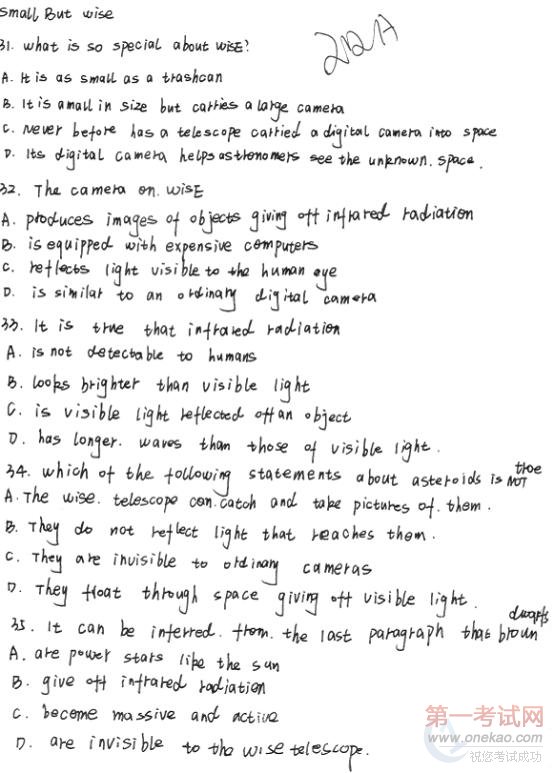 small But wise
31. what is so special about wisE?
A. It is as small as a trashcan
B. It is amall in size but carries a large camera
C. Never before has a telescope carried a digital camera into space
D. Its digital camera helps astronomers see the unknown. space.
32. The camera on. wisE
A. produces images of objects giving off infrared radiation
B. is equipped with expensive computers
C. reflects light visible to the human eye
D. is similar to an ordinary digital camera
33. It is true that infrared radiation
A. is not detectable to humans
B. looks brighter than visible light
C. is visible light reflected off an object
D. has longer. waves than those of visible light.
34. which of the following statements about asteroids is NOT true
A. The wise. telescope can. catch and take pictures of. them.
B. They do not reflect light that reaches them.
C. They are invisible to ordinary cameras
D. They float through space giving off visible light.
35. It can be inferred. from. the last paragraph thas broun dwarfs
A. are power stars like the sun
B. give off infrared radiation
C. become massive and active
D. are invisible to the wise telescope.
第一考试网
www.onekao.com
祝您考试成功